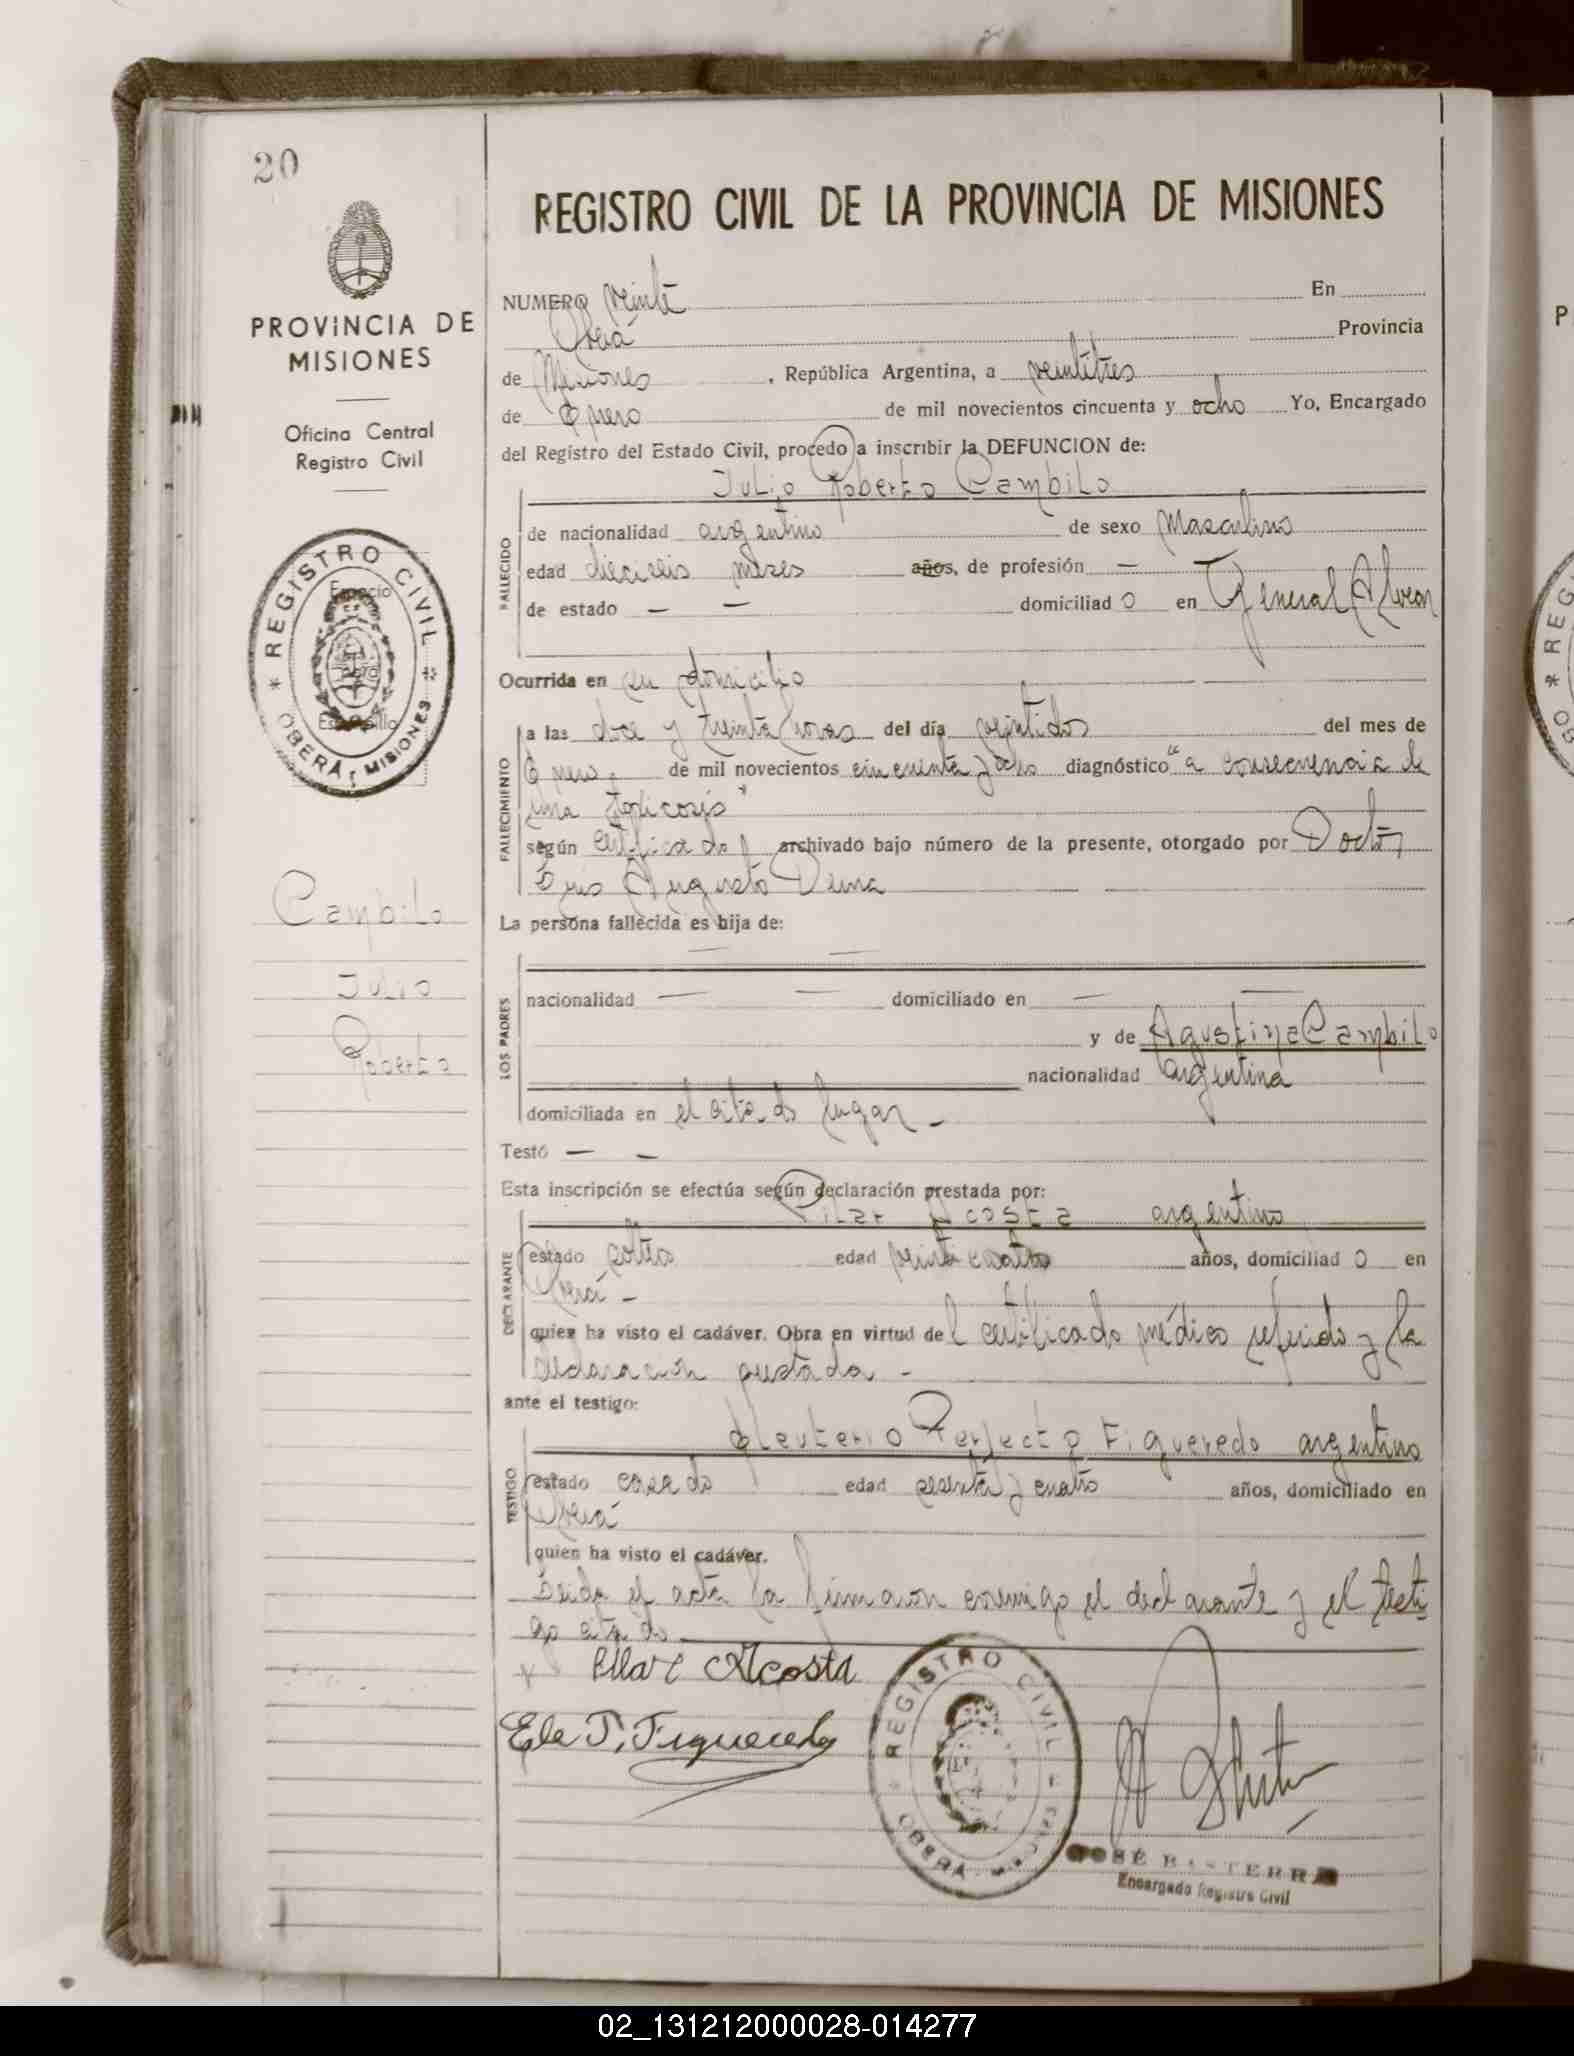 20
REGISTRO CIVIL DE LA PROVINCIA DE MISIONES
PROVINCIA DE
MISIONES
Oficina Central
Registro Civil
REGISTRO CIVIL
OBERÁ, MISIONES
Cambilo
Julio
Roberto
NUMERO veinte En
Oberá Provincia
de Misiones, República Argentina, a veintitres
de Enero de mil novecientos cincuenta y ocho Yo, Encargado
del Registro del Estado Civil, procedo a inscribir la DEFUNCION de:
Julio Roberto Cambilo
FALLECIDO
de nacionalidad argentino de sexo Masculino
edad dieciseis meses años, de profesión —
de estado — — domiciliado en General Alvear
Ocurrida en su domicilio
FALLECIMIENTO
a las doce y treinta horas del día veintidos del mes de
Enero de mil novecientos cincuenta y ocho diagnóstico "a consecuencia de
una toxicosis"
según certificado archivado bajo número de la presente, otorgado por Doctor
Augusto
La persona fallecida es hija de:
LOS PADRES
— —
nacionalidad — — domiciliado en — —
y de Agustina Cambilo
nacionalidad argentina
domiciliada en el citado lugar -
Testó — —
Esta inscripción se efectúa según declaración prestada por:
DECLARANTE
Pilar Acosta argentino
estado soltero edad veinticuatro años, domiciliado en
Oberá -
quien ha visto el cadáver. Obra en virtud del certificado médico referido y la
declaración prestada -
ante el testigo:
TESTIGO
Eleuterio Perfecto Figueredo argentino
estado casado edad sesenta y cuatro años, domiciliado en
Oberá
quien ha visto el cadáver.
Leida el acta la firmaron conmigo el declarante y el testi
go citado
Pilar Acosta
Ele P. Figueredo
REGISTRO CIVIL
OBERÁ
JOSÉ BASTERRA
Encargado Registro Civil
02_131212000028-014277